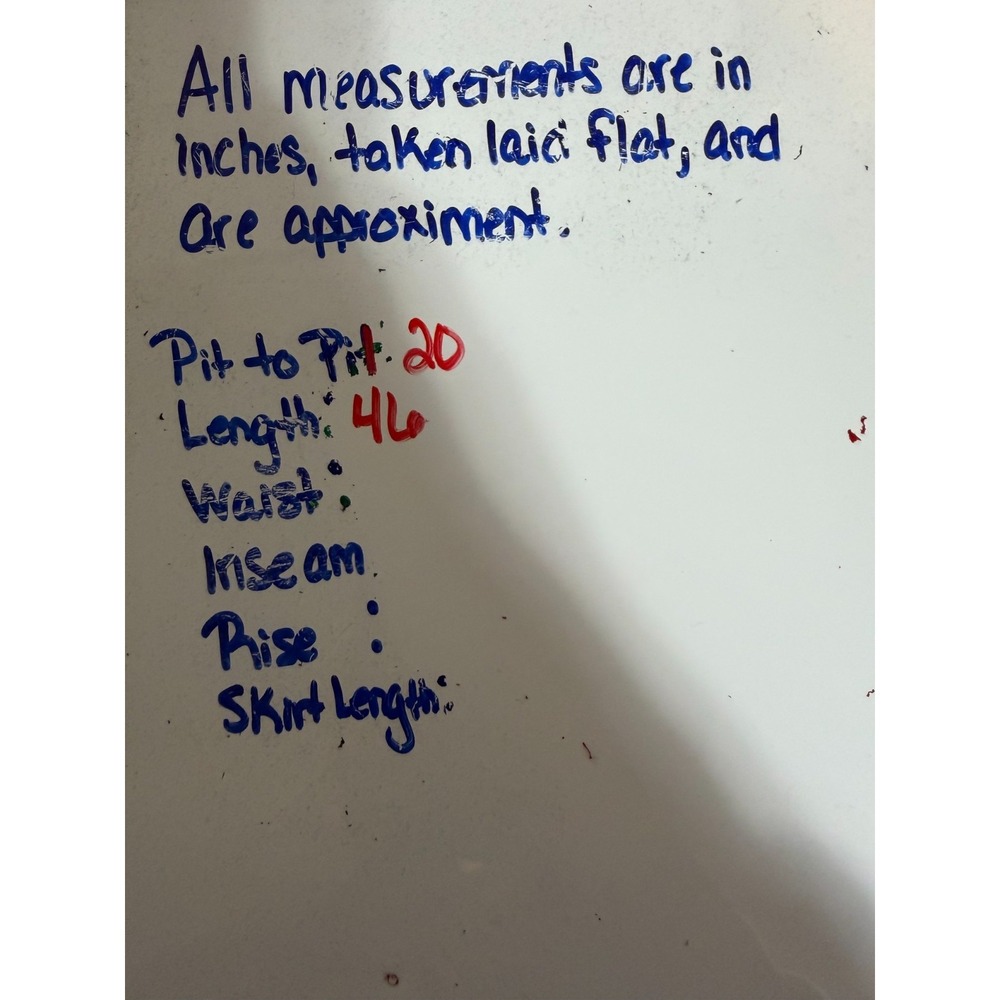 All measurements are in
inches, taken laid flat, and
are approximent.
Pit to Pit: 20
Length: 46
Waist:
Inseam
Rise :
Skirt Length: